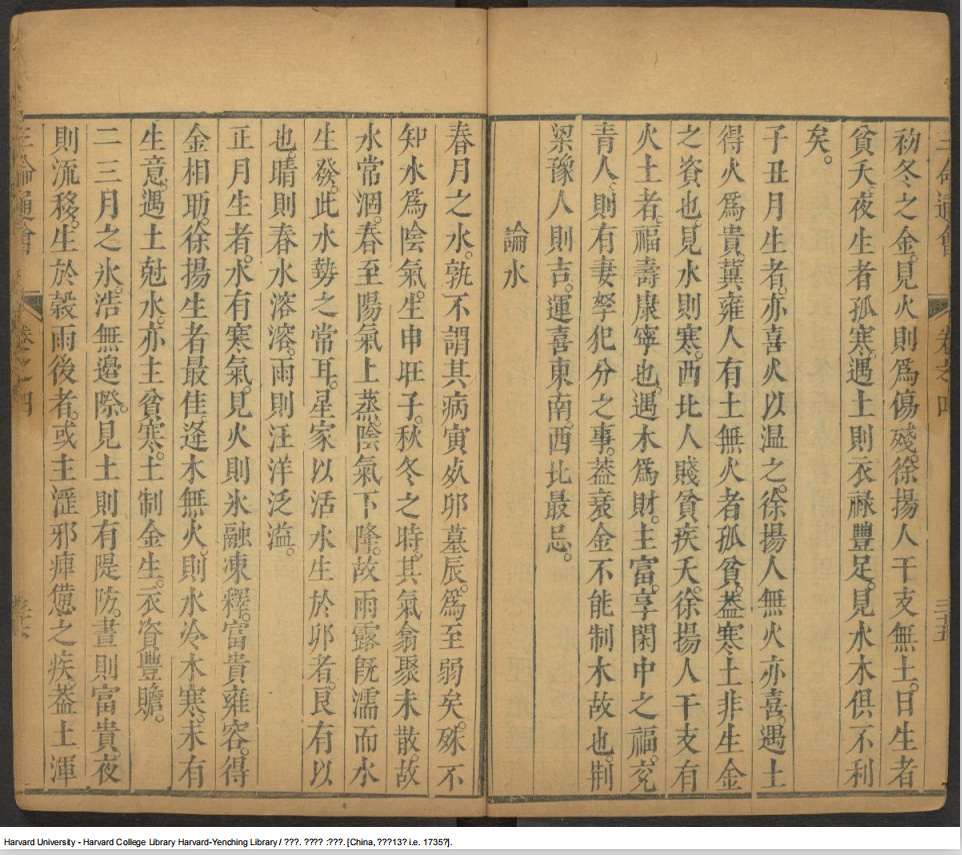 三命通會 卷之四 三十五
初冬之金。見火則爲傷殘。徐揚人干支無土。日生者
貧夭。夜生者孤寒。遇土則衣祿豐足。見水木俱不利
矣。
子丑月生者。亦喜火以温之。徐揚人無火亦喜。遇土
得火爲貴。冀雍人有土無火者孤貧。葢寒土非生金
之資也。見水則寒。西北人賤貧疾夭。徐揚人干支有
火土者。福壽康寧也。遇木爲財。主富。享閑中之福。兖
青人。則有妻孥犯分之事。葢衰金不能制木故也。荆
梁豫人則吉。運喜東南。西北最忌。
論水
春月之水。孰不謂其病寅敗卯墓辰。爲至弱矣。殊不
知水爲陰氣。生申旺子。秋冬之時。其氣翕聚未散。故
水常涸。春至陽氣上蒸。陰氣下降。故雨露旣濡而水
生發。此水勢之常耳。星家以活水生於卯者。良有以
也。晴則春水溶溶。雨則汪洋泛溢。
正月生者。水有寒氣。見火則氷融凍釋。富貴雍容。得
金相助。徐揚生者最佳。逢木無火。則水冷木寒。未有
生意。遇土尅水。亦主貧寒。土制金生。衣資豐贍。
二三月之水。浩無邊際。見土則有隄防。晝則富貴。夜
則流移。生於穀雨後者。或主濕邪痺憊之疾。葢土渾
三命通會 卷之四
Harvard University - Harvard College Library Harvard-Yenching Library / ???. ???? :???. [China, ???13? i.e. 1735?].